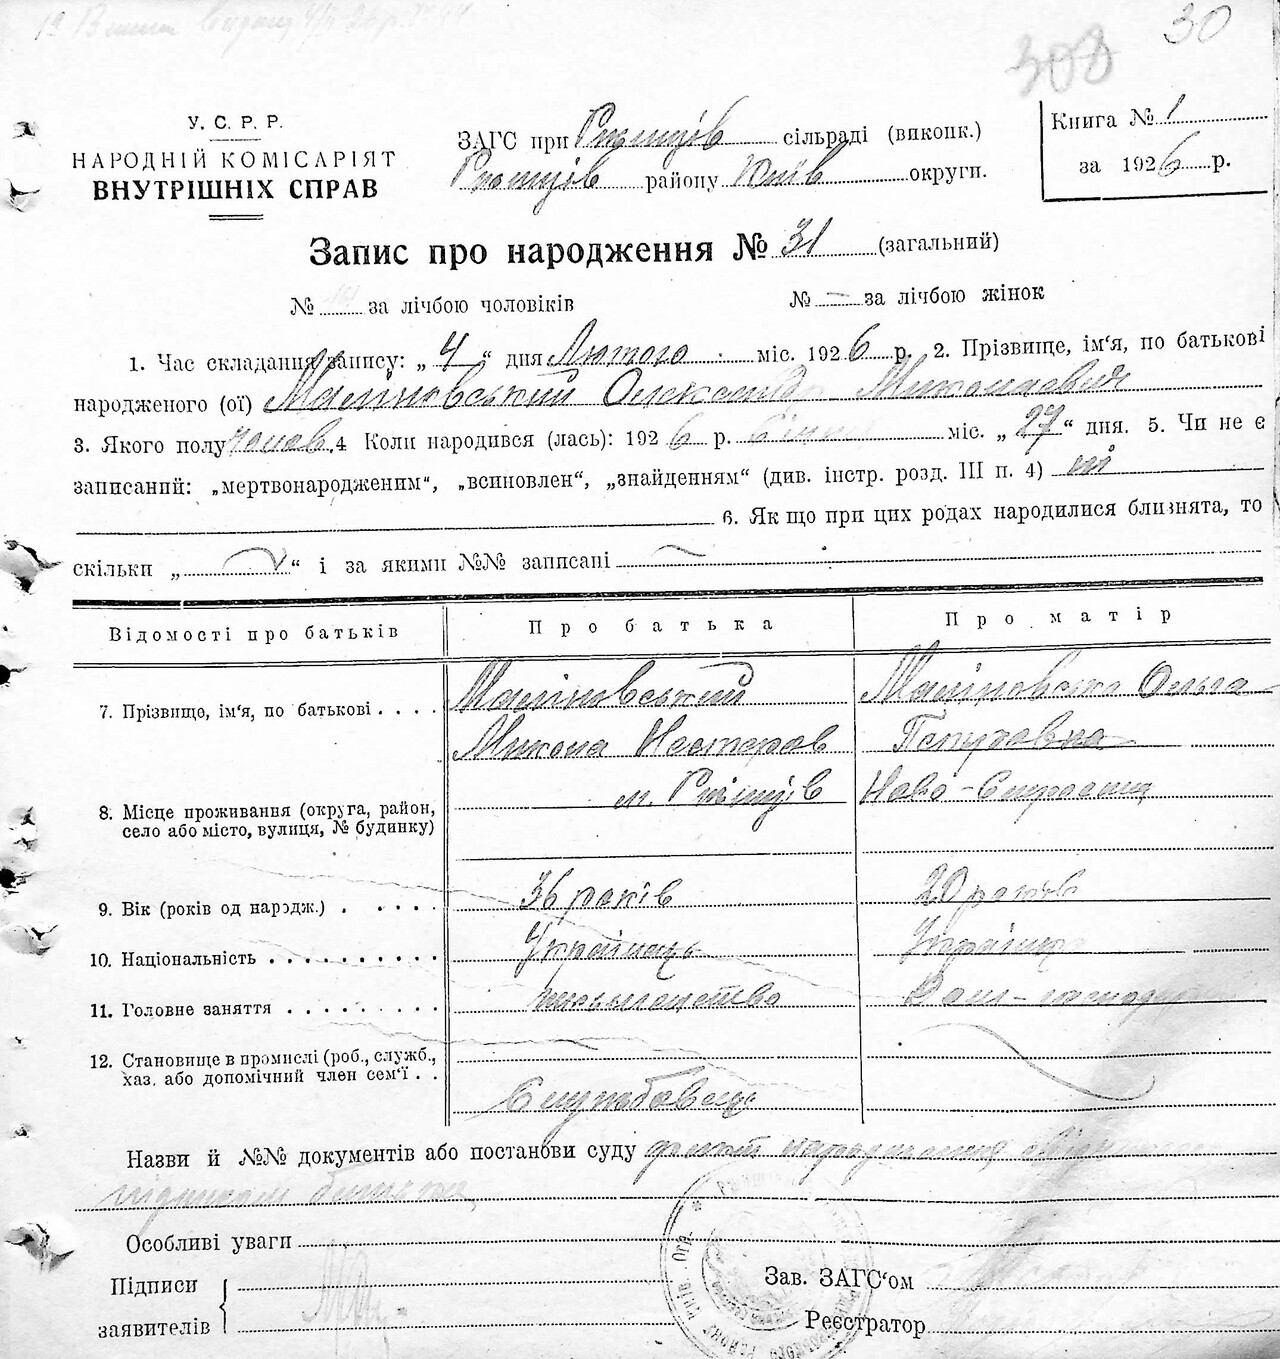 30
308
У. С. Р. Р.
НАРОДНІЙ КОМІСАРІЯТ
ВНУТРІШНІХ СПРАВ
ЗАГС при Ржищів сільраді (виконк.)
Ржищів району Київ округи.
Книга № 1
за 1926 р.
Запис про народження № 31 (загальний)
№ за лічбою чоловіків № — за лічбою жінок
1. Час складання запису: „ 4 “ дня Лютого міс. 1926 р. 2. Прізвище, ім'я, по батькові
народженого (ої) Маліновський Олександр Миколаєвич
3. Якого полу чолов. 4 Коли народився (лась): 1926 р. Січня міс. „ 27 “ дня. 5. Чи не є
записаний: „мертвонародженим“, „всиновлен“, „знайденням“ (див. інстр. розд. III п. 4) ні
6. Як що при цих родах народилися близнята, то
скільки „ “ і за якими №№ записані —
Відомості про батьків Про батька Про матір
7. Прізвище, ім'я, по батькові . . . . Маліновський Маліновська Ольга
Микола Нестеров
м. Ржищів Ново-
8. Місце проживання (округа, район,
село або місто, вулиця, № будинку)
9. Вік (років од народж.) . . . . . 36 років 20 років
10. Національність . . . . . . . . . . Українець Українка
11. Головне заняття . . . . . . . . . Дом-господ
12. Становище в промислі (роб., служб.,
хаз. або допомічний член сем'ї . . Службовець
Назви й №№ документів або постанови суду факт народження
Особливі уваги
Підписи
заявителів
Зав. ЗАГС'ом
Реєстратор